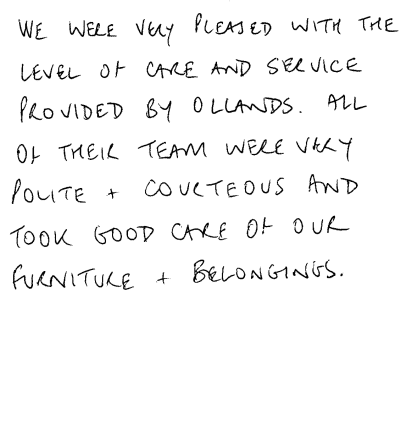 WE WERE VERY PLEASED WITH THE
LEVEL OF CARE AND SERVICE
PROVIDED BY OLLANDS. ALL
OF THEIR TEAM WERE VERY
POLITE + COURTEOUS AND
TOOK GOOD CARE OF OUR
FURNITURE + BELONGINGS.